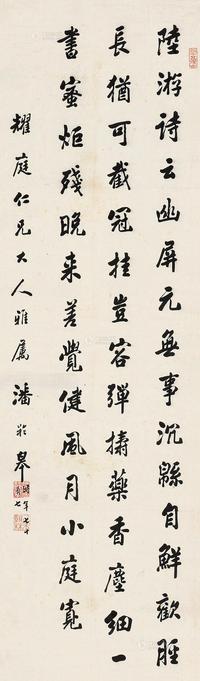 陸游詩云幽屏元無事沉緜自鮮歡脛
長猶可截冠挂豈容彈擣藥香塵細一
書蜜炬殘晚来差覺健風月小庭寬
耀庭仁兄大人雅屬 潘齡皋
時年七十有七